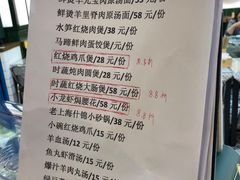 鲜烫羊宝肉原汤面/58 元/份
鲜烫羊里脊肉原汤面/58 元/份
水笋红烧肉煲/38 元/份
马蹄鲜肉蛋饺煲/38 元/份
红烧鸡爪煲/28 元/份 8.8折
时蔬炖肉圆煲/28 元/份
时蔬红烧大肠煲/58 元/份 8.8折
小龙虾焗腰花/58 元/份 8.8折
老上海什锦小砂锅/38 元/份
小碗红烧鸡爪/15 元/份
羊血汤/12 元/份
鱼丸虾滑汤/15 元/份
爆汁羊肉丸汤/15 元/份